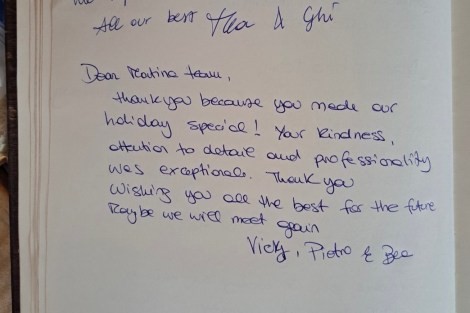 All our best
Dear team,
thank you because you made our
holiday special! Your kindness,
attention to detail and professionality
was exceptional. Thank you
Wishing you all the best for the future
Maybe we will meet again
Vicky, Pietro & Bea